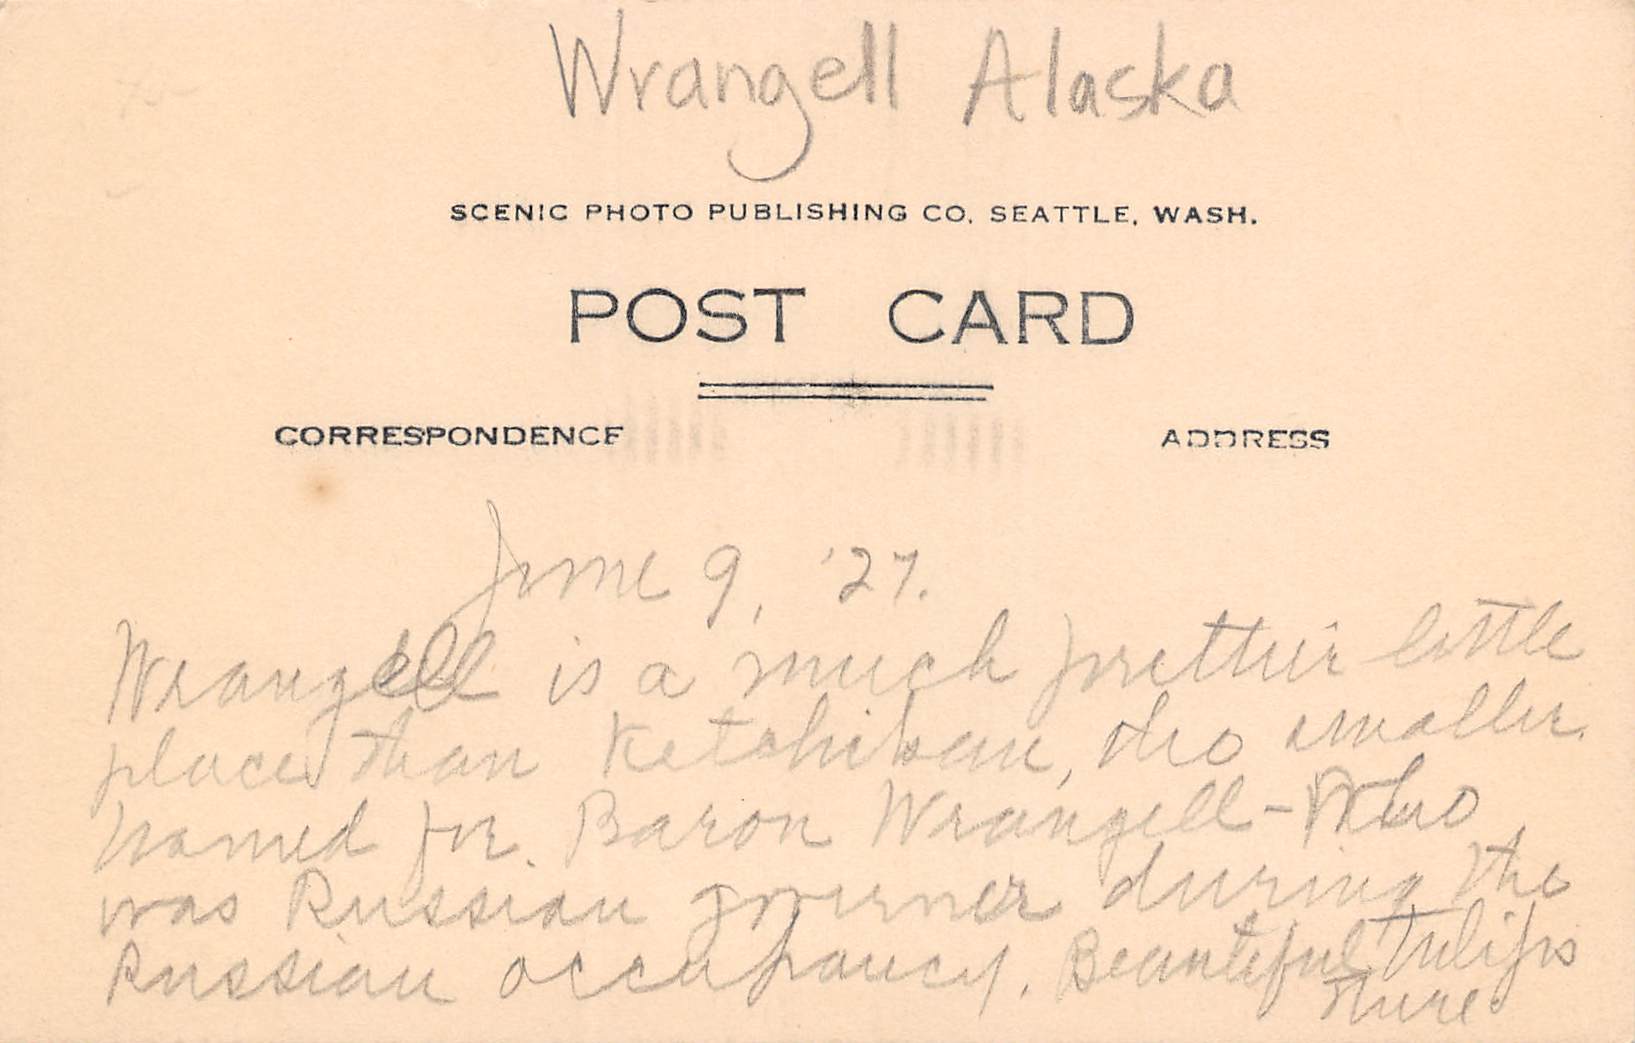 Wrangell Alaska
SCENIC PHOTO PUBLISHING CO. SEATTLE, WASH.
POST CARD
CORRESPONDENCE ADDRESS
June 9, '27.
Wrangell is a much prettier little
place than Ketchikan, tho smaller.
Named for Baron Wrangell - Who
was Russian governer during the
Russian occupancy. Beautiful tulips